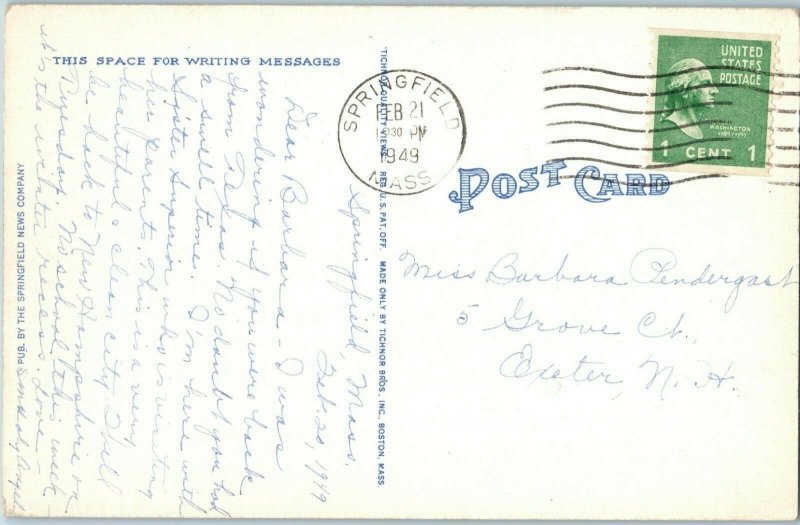 THIS SPACE FOR WRITING MESSAGES
Springfield, Mass.
Feb. 20, 1949
Dear Barbara – I was
wondering if you were back
from Texas. No doubt you had
a swell time. I'm here with
Sister Superior who is visiting
her parents. This is a very
beautiful & clean city. I'll
be back to New Hampshire on
Tuesday. No school this week –
it's the winter recess. Love –
Sr. M. Holy Angels
PUB. BY THE SPRINGFIELD NEWS COMPANY
TICHNOR QUALITY VIEWS REG. U.S. PAT. OFF. MADE ONLY BY TICHNOR BROS., INC., BOSTON, MASS.
SPRINGFIELD
FEB 21
PM
1949
MASS
UNITED
STATES
POSTAGE
WASHINGTON
1789-1797
1 CENT 1
POST CARD
Miss Barbara Pendergast
5 Grove Ct.,
Exeter, N. H.